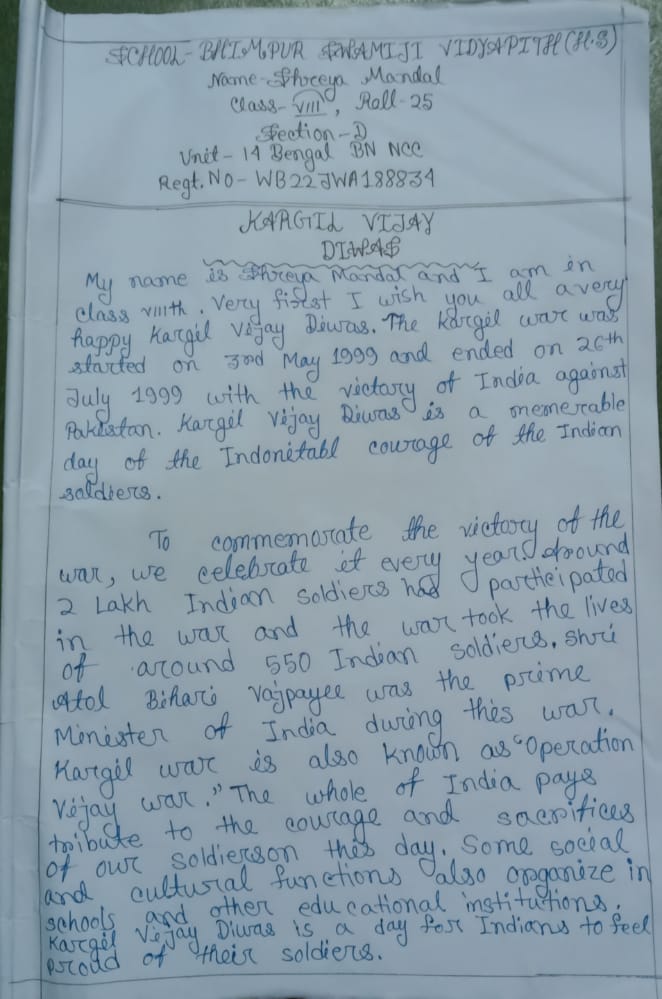 SCHOOL- BHIMPUR SWAMIJI VIDYAPITH(H.S)
Name-Shreya Mandal
Class- VIII, Roll-25
Section-D
Unit- 14 Bengal BN NCC
Regt.No- WB22JWA188834
KARGIL VIJAY
DIWAS
My name is Shreya Mandal and I am in
class VIIIth. Very first I wish you all a very
happy Kargil Vijay Diwas. The Kargil war was
started on 3rd May 1999 and ended on 26th
July 1999 with the victary of India against
Pakistan. Kargil Vijay Diwas is a memerable
day of the Indonitabl courage of the Indian
soldiers.
To commemorate the victory of the
war, we celebrate it every year. Around
2 Lakh Indian soldiers had participated
in the war and the war took the lives
of around 550 Indian soldiers. Shri
Atol Bihari Vajpayee was the prime
Minister of India during this war.
Kargil war is also known as "Operation
Vijay war." The whole of India pays
tribute to the courage and sacrifices
of our soldierson this day. Some social
and cultural functions also organize in
schools and other educational institutions.
Kargil Vijay Diwas is a day for Indians to feel
proud of their soldiers.